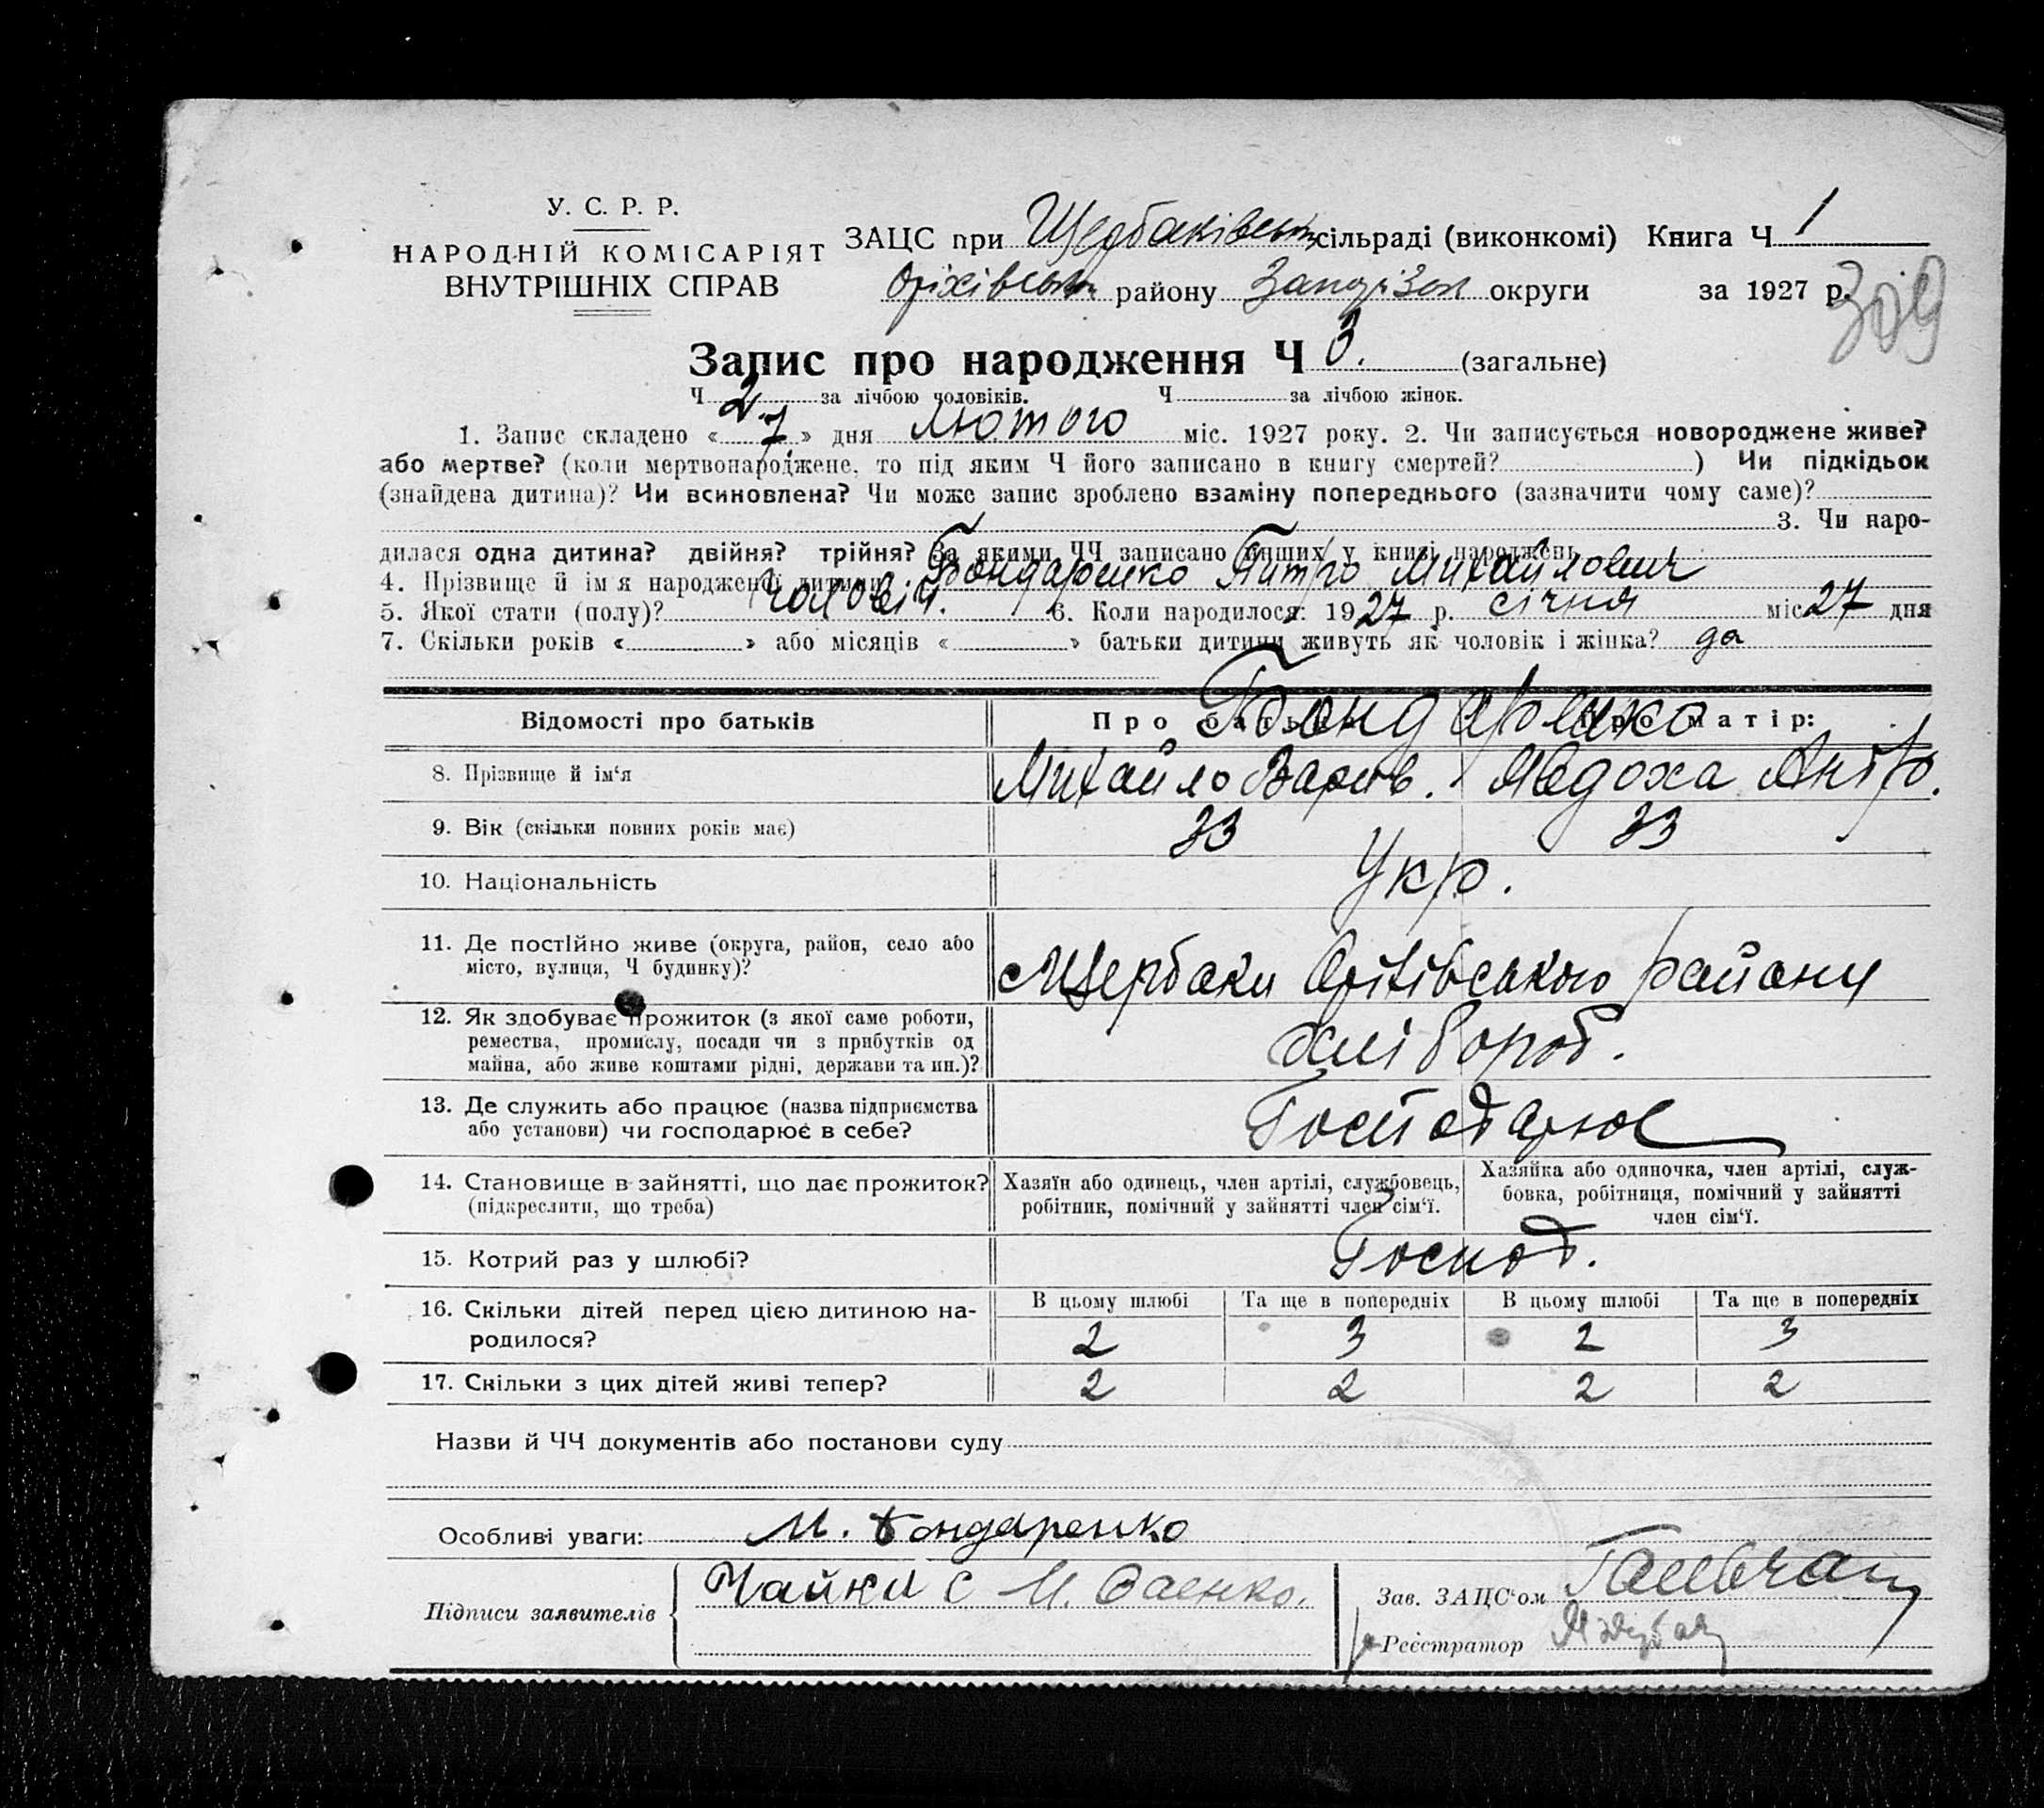 У. С. Р. Р.
НАРОДНІЙ КОМІСАРІЯТ
ВНУТРІШНІХ СПРАВ
ЗАЦС при Щербаківськ сільраді (виконкомі) Книга Ч 1
Оріхівськ району Запоріз округи за 1927 р.
309
Запис про народження Ч 3. (загальне)
Ч 2 за лічбою чоловіків. Ч за лічбою жінок.
1. Запис складено « 7 » дня лютого міс. 1927 року. 2. Чи записується новороджене живе?
або мертве? (коли мертвонароджене, то під яким Ч його записано в книгу смертей? ) Чи підкідьок
(знайдена дитина)? Чи всиновлена? Чи може запис зроблено взаміну попереднього (зазначити чому саме)?
3. Чи наро-
дилася одна дитина? двійня? трійня? За якими ЧЧ записано інших у книзі народжень
4. Прізвище й ім'я народженої дитини Бондаренко Питро Михайлович
5. Якої стати (полу)? чоловіч. 6. Коли народилося: 1927 р. січня міс 27 дня
7. Скільки років « » або місяців « » батьки дитини живуть як чоловік і жінка? да
Відомості про батьків Про батька: Про матір:
Бондаренко
8. Прізвище й ім'я Михайло Вар Явдоха Антр.
9. Вік (скільки повних років має) 33 33
10. Національність Укр.
11. Де постійно живе (округа, район, село або
місто, вулиця, Ч будинку)?
с Щербаки Оріхівського району
12. Як здобуває прожиток (з якої саме роботи,
ремества, промислу, посади чи з прибутків од
майна, або живе коштами рідні, держави та ин.)?
хлібороб.
13. Де служить або працює (назва підприємства
або установи) чи господарює в себе?
Господарює
14. Становище в зайнятті, що дає прожиток?
(підкреслити, що треба)
Хазяїн або одинець, член артілі, службовець,
робітник, помічний у зайнятті член сім'ї.
Хазяйка або одиночка, член артілі, служ-
бовка, робітниця, помічний у зайнятті
член сім'ї.
15. Котрий раз у шлюбі? Господ.
16. Скільки дітей перед цією дитиною на-
родилося?
В цьому шлюбі Та ще в попередніх В цьому шлюбі Та ще в попередніх
2 3 2 3
17. Скільки з цих дітей живі тепер? 2 2 2 2
Назви й ЧЧ документів або постанови суду
Особливі уваги: М. Бондаренко
Підписи заявителів Чайки с М.
Зав. ЗАЦС'ом
Реєстратор